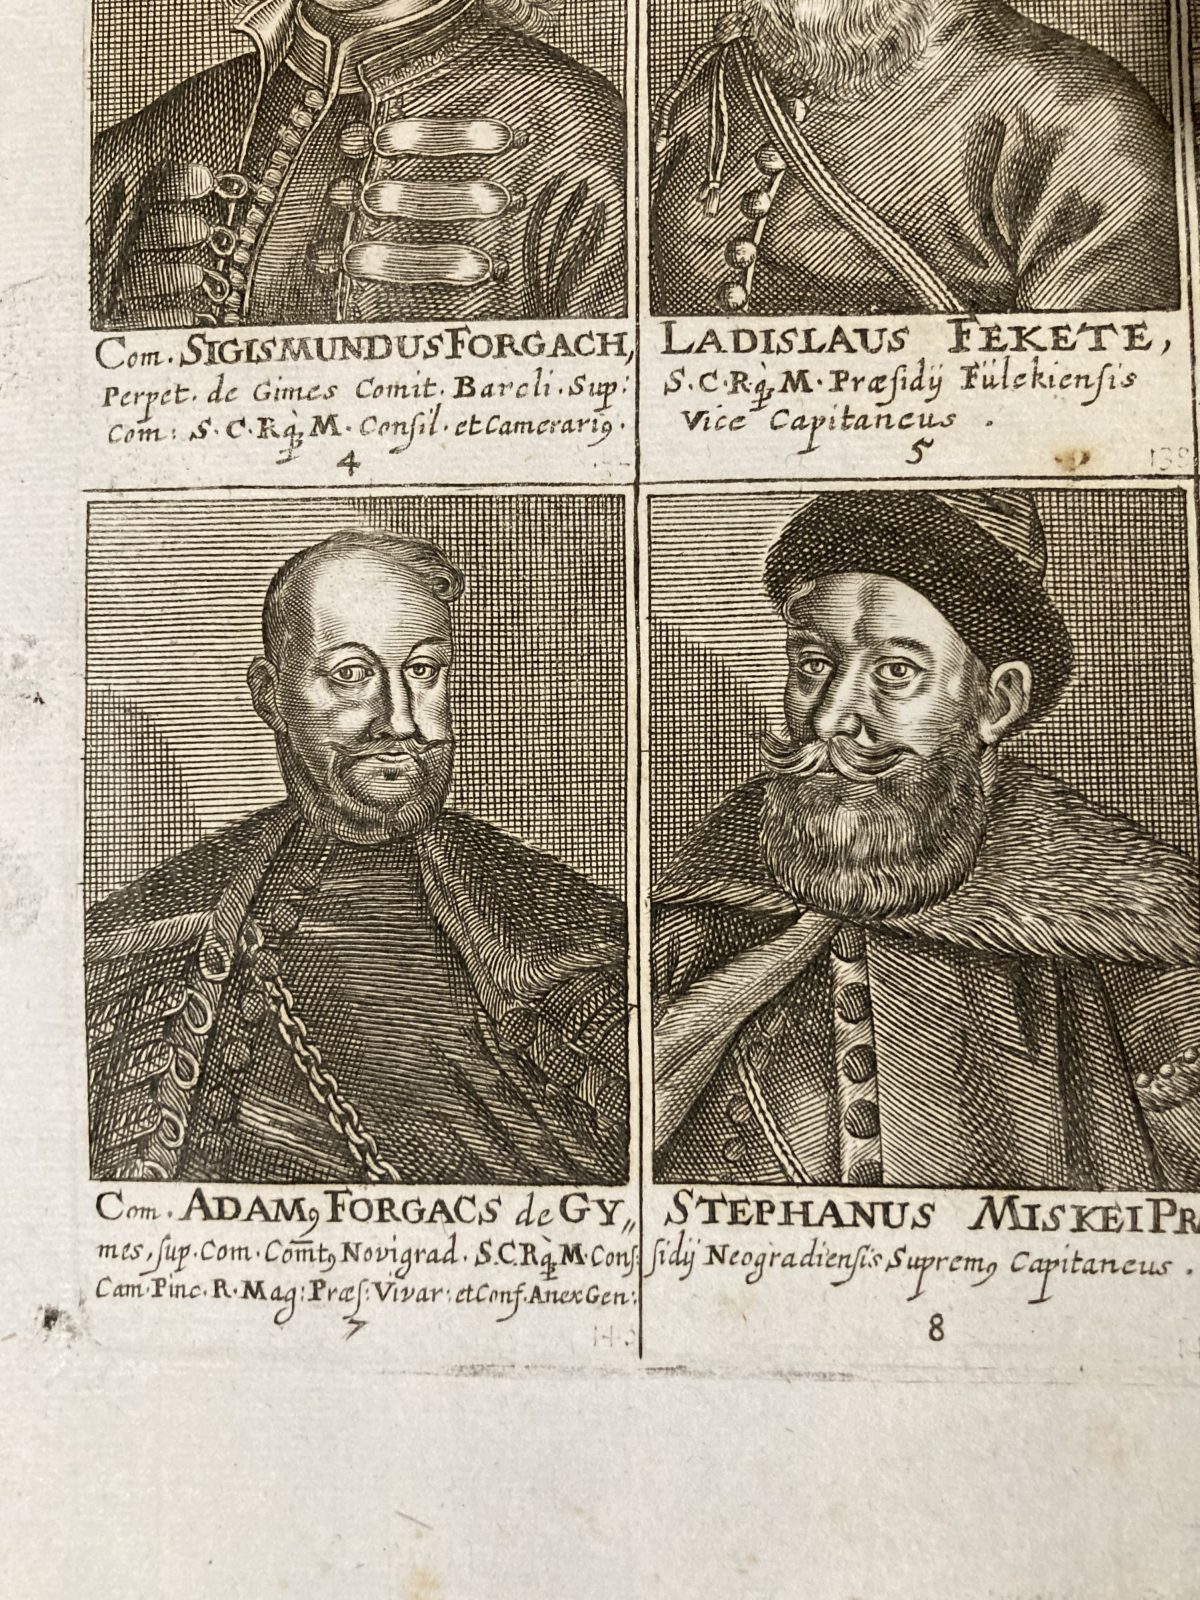 Com. SIGISMUNDUS FORGACH,
Perpet. de Gimes Comit. Barcli. Sup:
Com: S. C. Rq́; M. Consil. et Camerariꝰ.
4
LADISLAUS FEKETE,
S. C. Rq́; M. Præsidÿ Fülekiensis
Vice Capitaneus.
5
138
Com. ADAMꝰ FORGACS de GY„
mes, sup. Com. Com̄tꝰ Novigrad. S.C.Rq́; M. Cons:
Cam. Pinc. R. Mag: Præs: Vivar: et Conf. Anex Gen:
7
STEPHANUS MISKEI PR
sidÿ Neogradiensis Supremꝰ Capitaneus.
8